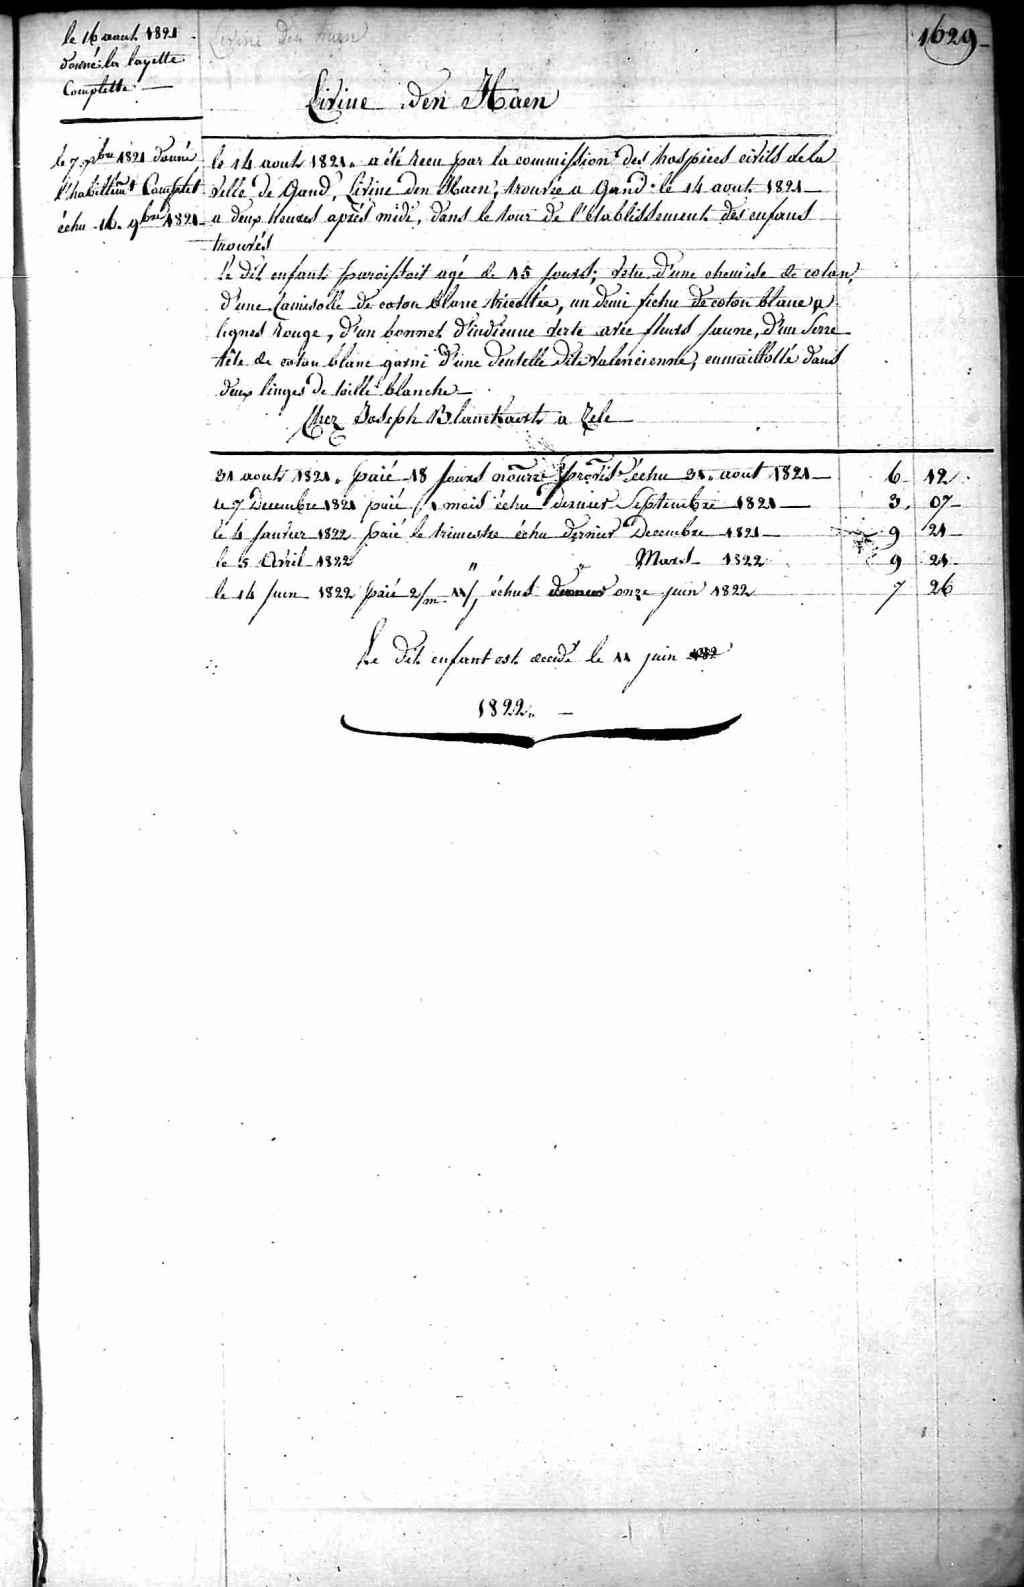 1629
le 16 aout 1821
donné la layette
Complette
Livine Den Haen
Livine den Haen
le 7 xbre 1821 donné
l'habillemt Complet
échu 16. 9bre 1821
le 14 aout 1821. a été recu par la commission des hospices civils de la
ville de Gand, Livine den Haen, trouvée a Gand le 14 aout 1821
a deux heures après midi, dans le tour de l'établissement des enfans
trouvés
le dit enfant paroissoit agé de 15 jours; vetu d'une chemise de coton,
d'une Camisolle de coton blanc tricottée, un demi fichu de coton blanc a
lignes rouge, d'un bonnet d'indienne verte avec fleurs jaune, d'un Serre
tête de coton blanc garni d'une dentelle dite valencienne, emmaillotté dans
deux linges de toille blanche
Chez Joseph Blanckaert a Zele
31 aout 1821. paié 18 jours nourre provis. échu 31. aout 1821 6 12
le 7 Decembre 1821 paié 1 mois échu dernier Septembre 1821 3. 07
le 4 janvier 1822 paié le trimestre échu dernier Decembre 1821 9 21
le 5 Avril 1822 " " Mars 1822 9 21
le 14 juin 1822 paié 2/m 11/j échus dernier onze juin 1822 7 26
Le dit enfant est decedé le 11 juin 182
1822.